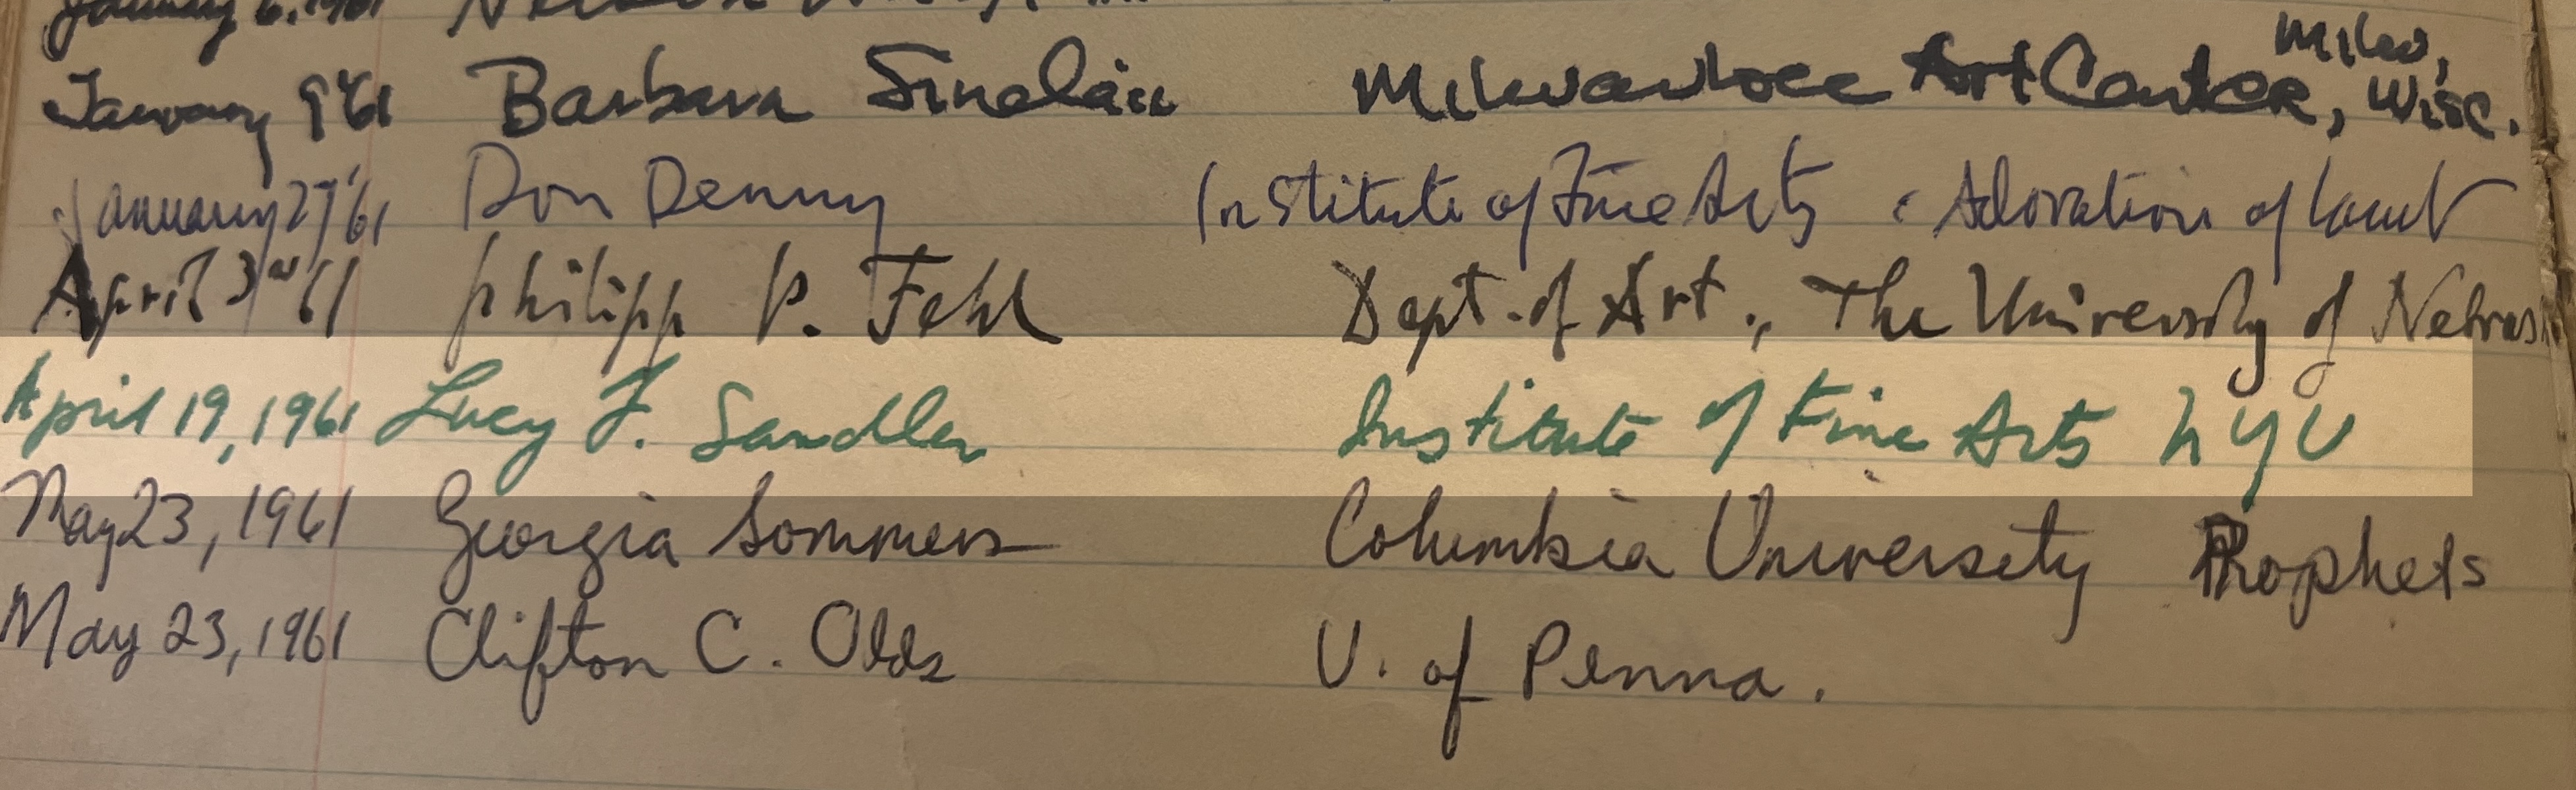 January 6, 1961
January 9 '61 Barbara Sinclair Milwaukee Art Center, Milw, Wisc.
January 27 '61 Don Denny Institute of Fine Arts Adoration of Lamb
April 3rd '61 Philipp P. Fehl Dept. of Art, The University of Nebras
April 19, 1961 Lucy F. Sandler Institute of Fine Arts NYU
May 23, 1961 Georgia Sommers Columbia University Prophets
May 23, 1961 Clifton C. Olds U. of Penna.